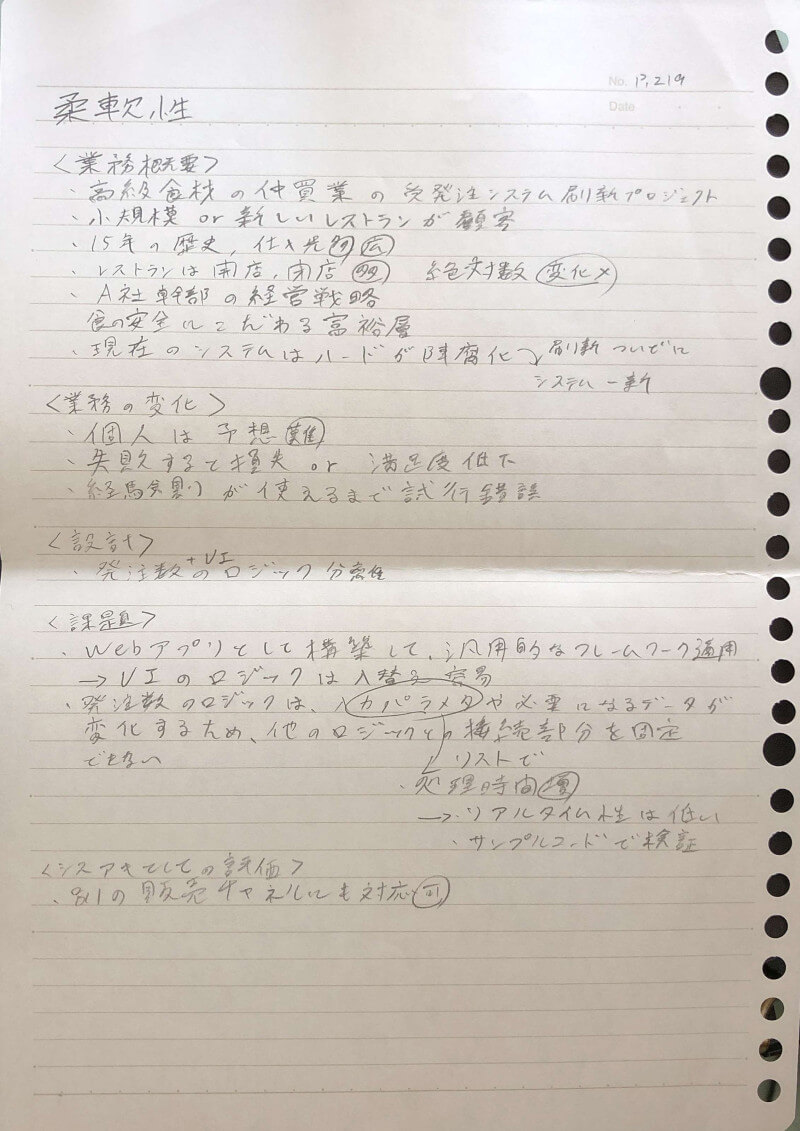 No. P,219
Date
柔軟性
<業務概要>
・高級食材の仲買業の受発注システム刷新プロジェクト
・小規模 or 新しいレストランが顧客
・15年の歴史, 仕入先 多 広
・レストランは開店, 閉店 多 絶対数 変化×
・A社幹部の経営戦略
食の安全にこだわる富裕層
・現在のシステムはハードが陳腐化 → 刷新ついでに
システム一新
<業務の変化>
・個人は予想 難
・失敗すると損失 or 満足度低下
・経験則が使えるまで試行錯誤
<設計>
・発注数+UIのロジック分離
<課題>
・Webアプリとして構築して、汎用的なフレームワーク適用
→ UIのロジックは入替え容易
・発注数のロジックは、入力パラメタや必要になるデータが
変化するため、他のロジックとの接続部分を固定
できない
リストで
・処理時間 増
→・リアルタイム性は低い
・サンプルコードで検証
<シスアキとしての評価>
・別の販売チャネルにも対応 可